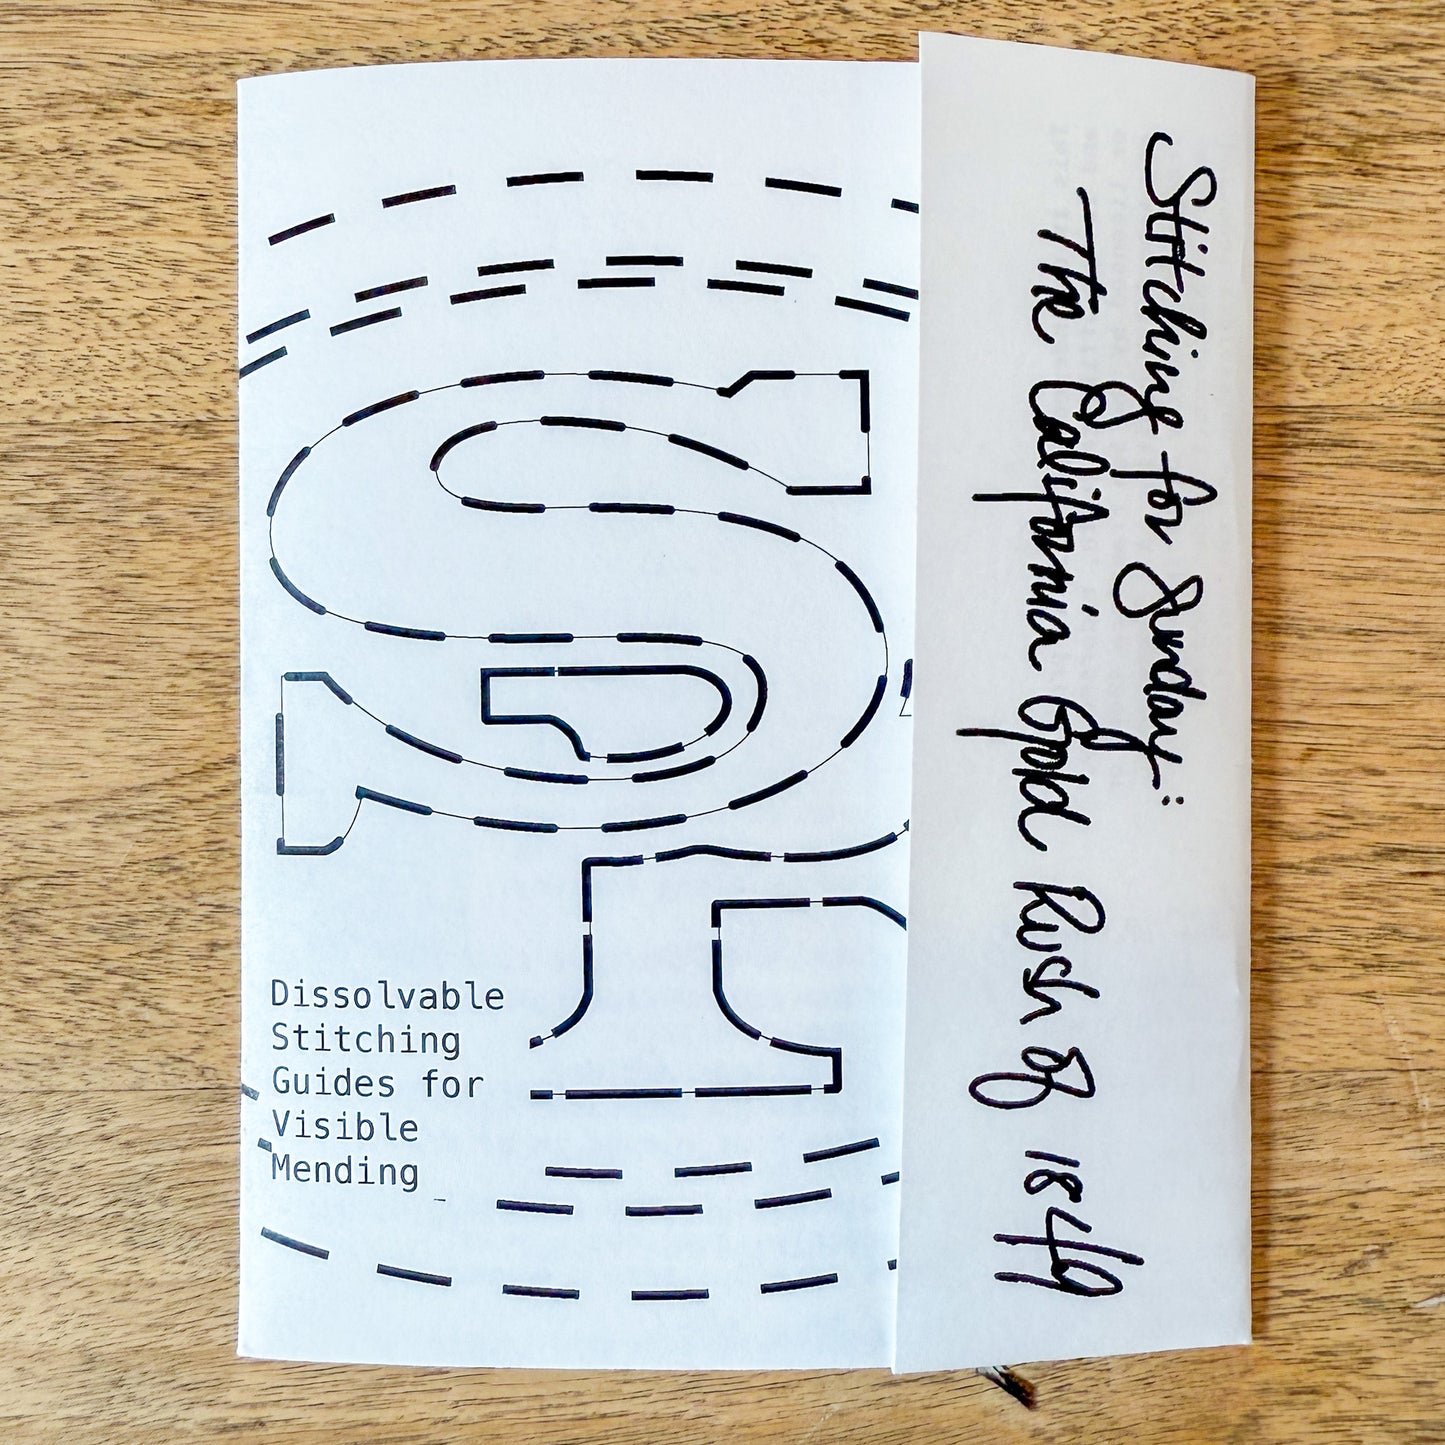 Stitching for Sunday:
The California Gold Rush of 1849
S
Dissolvable
Stitching
Guides for
Visible
Mending